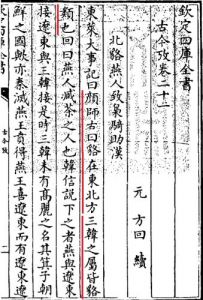 欽定四庫全書
古今攷卷二十一
元 方回 續
北貉燕人致梟騎助漢
東萊大事記曰顔師古曰貉在東北方三韓之屬皆貉
類也回曰燕人臧荼之人也韓信說下之者燕與遼東
接遼東與三韓接是時三韓未有髙麗之名其箕子朝
鮮之國歟亦秦滅燕王負得燕王喜遼東而有遼東遼
古今攷
二